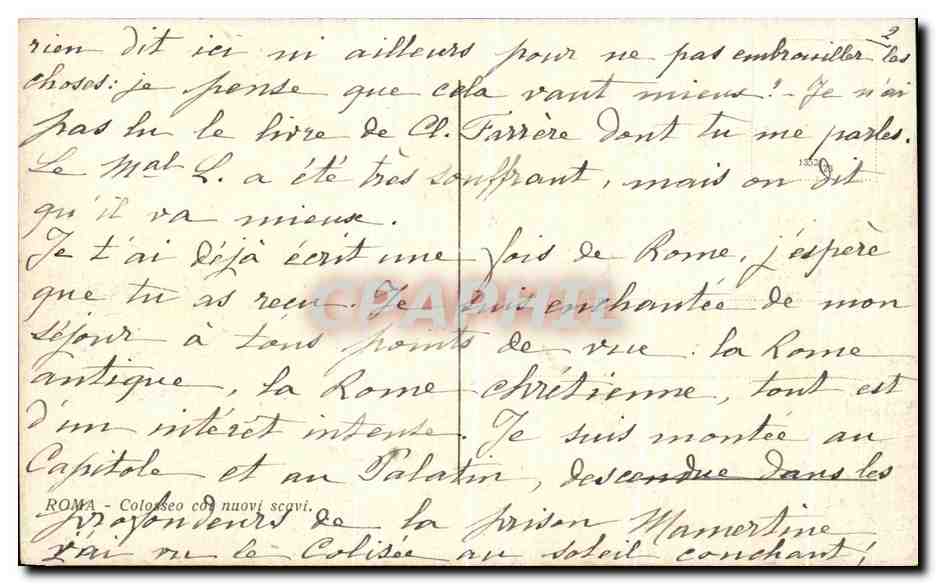 2
rien dit ici ni ailleurs pour ne pas embrouiller les
choses: je pense que cela vaut mieux! - Je n'ai
pas lu le livre de Cl. Farrère dont tu me parles.
Le Mal L. a été très souffrant, mais on dit
qu'il va mieux.
Je t'ai déjà écrit une fois de Rome, j'espère
que tu as reçu. Je suis enchantée de mon
séjour à tous points de vue : la Rome
antique, la Rome chrétienne, tout est
d'un intérêt intense. Je suis montée au
Capitole et au Palatin, descendue dans les
ROMA - Colosseo coi nuovi scavi.
profondeurs de la prison Mamertine,
j'ai vu le Colisée au soleil couchant,
CPAPHIL